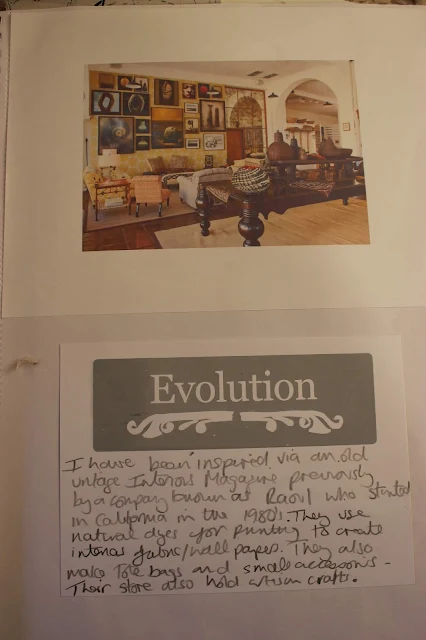 Evolution
I have been inspired via an old
vintage Interiors Magazine previously
by a company known as Raoul who started
in California in the 1980's. They use
natural dyes for printing to create
interios fabris/wall papers. They also
make Tote bags and small accessories -
Their store also hold artisan crafts.